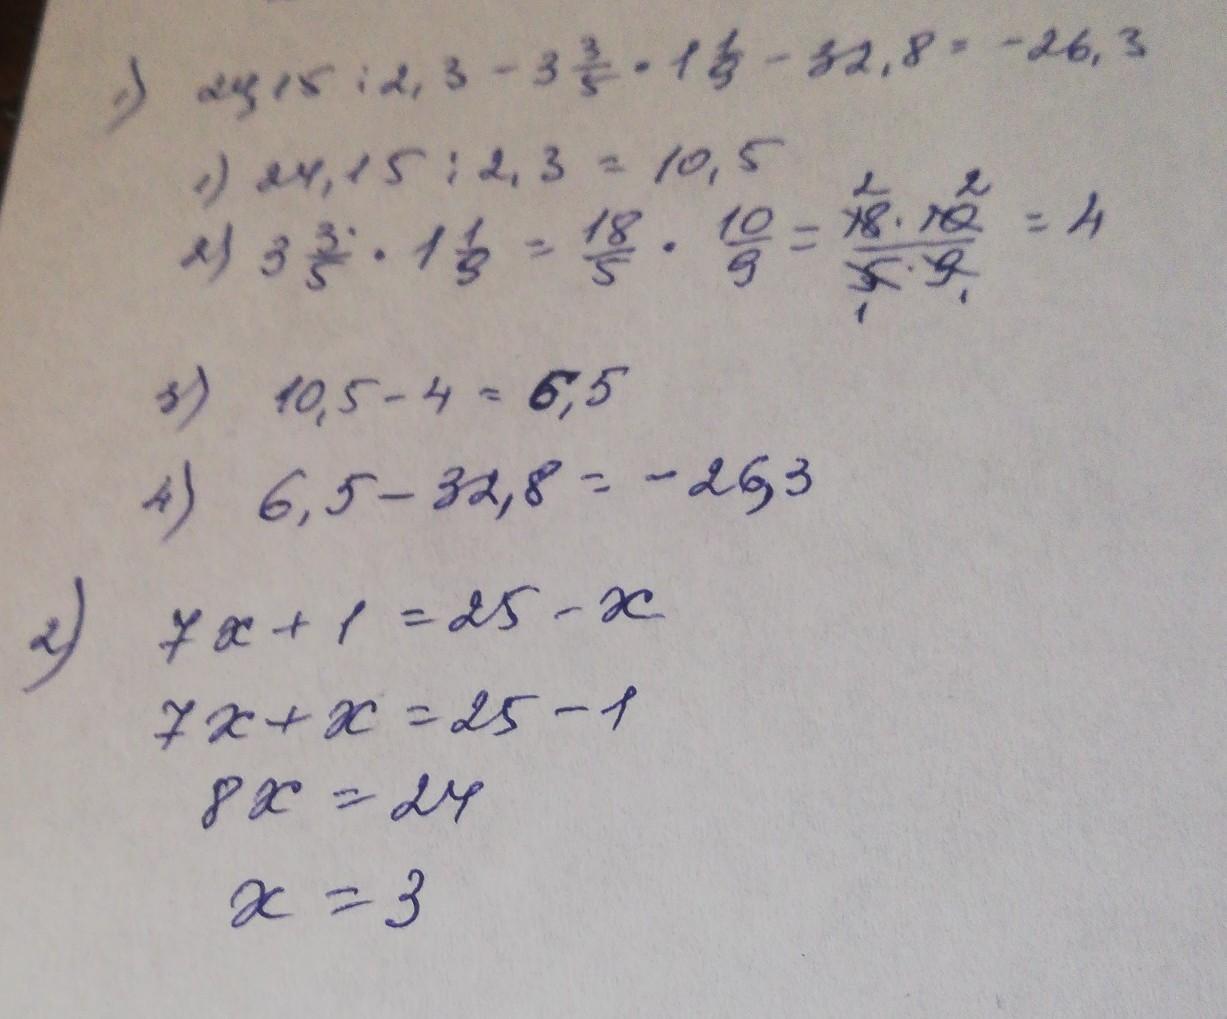 1) 24,15 : 2,3 - 3 3/5 • 1 1/9 - 32,8 = -26,3
1) 24,15 : 2,3 = 10,5
2) 3 3/5 • 1 1/9 = 18/5 • 10/9 = 18 2 • 10 2 / 5 1 • 9 1 = 4
3) 10,5 - 4 = 6,5
4) 6,5 - 32,8 = -26,3
2) 7x + 1 = 25 - x
7x + x = 25 - 1
8x = 24
x = 3